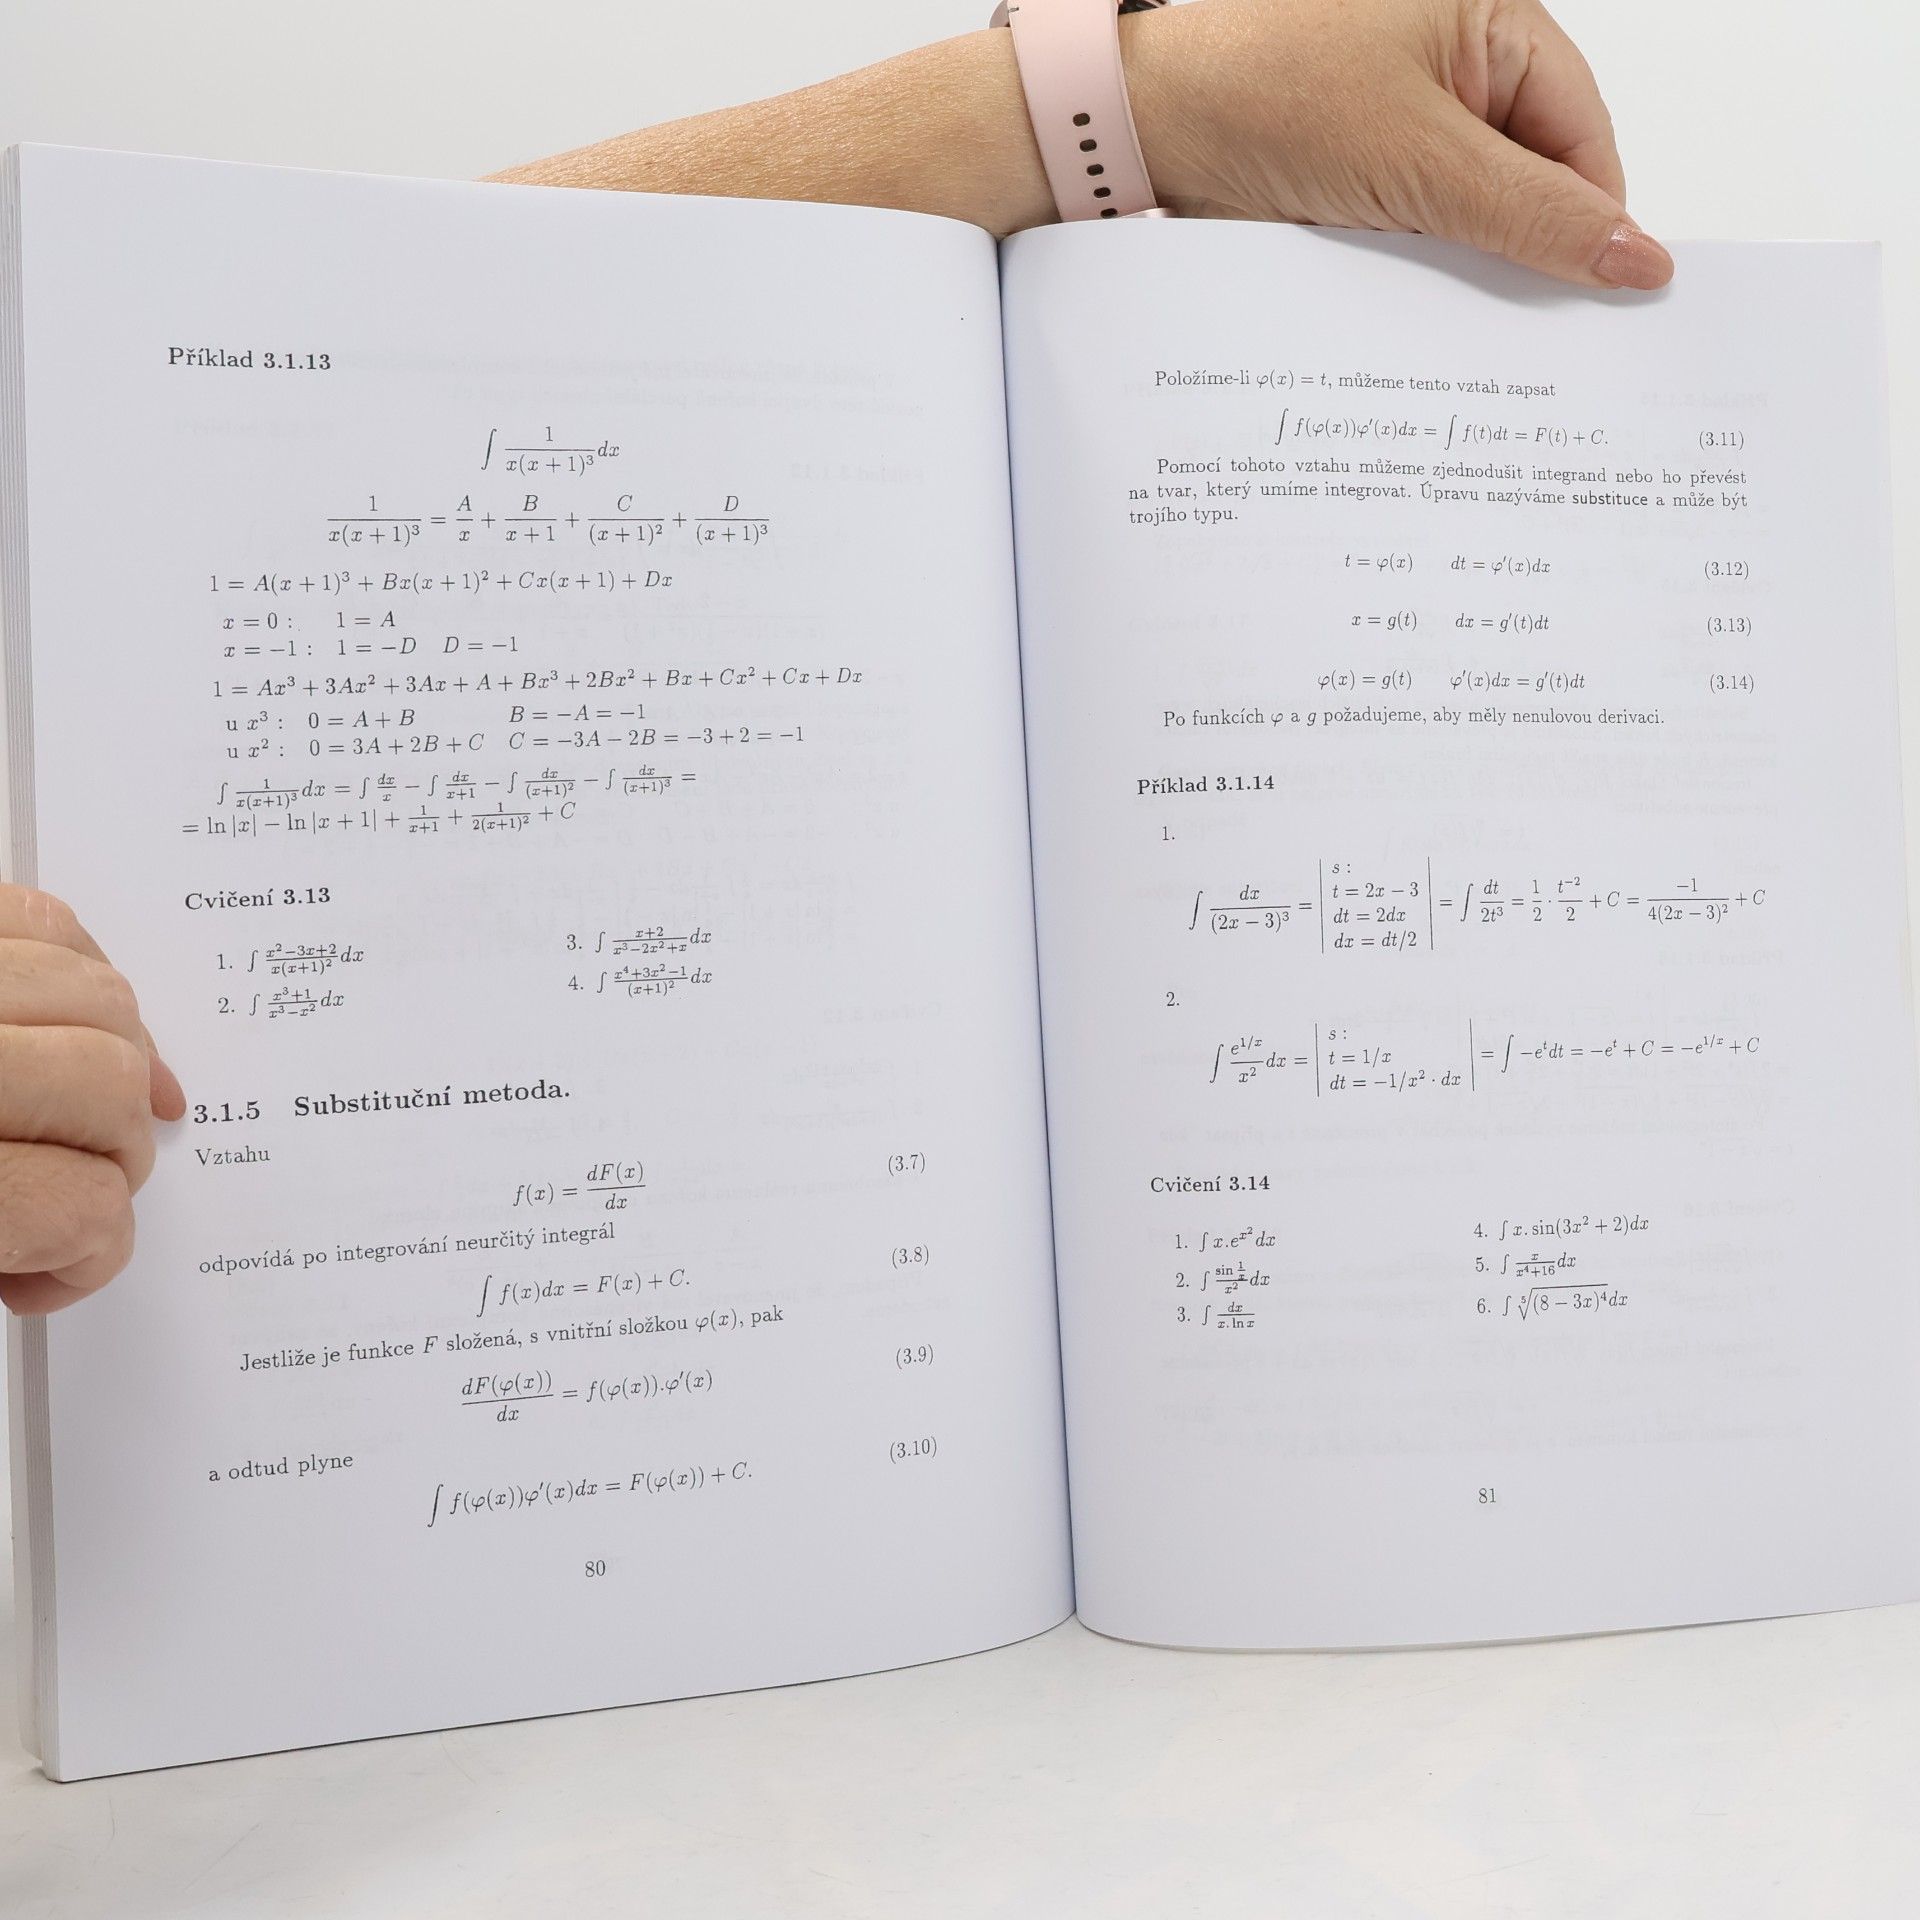 Příklad 3.1.13
∫ 1/(x(x + 1)³) dx
1/(x(x + 1)³) = A/x + B/(x + 1) + C/(x + 1)² + D/(x + 1)³
1 = A(x + 1)³ + Bx(x + 1)² + Cx(x + 1) + Dx
x = 0 : 1 = A
x = −1 : 1 = −D D = −1
1 = Ax³ + 3Ax² + 3Ax + A + Bx³ + 2Bx² + Bx + Cx² + Cx + Dx
u x³ : 0 = A + B B = −A = −1
u x² : 0 = 3A + 2B + C C = −3A − 2B = −3 + 2 = −1
∫ 1/(x(x+1)³) dx = ∫ dx/x − ∫ dx/(x+1) − ∫ dx/(x+1)² − ∫ dx/(x+1)³ =
= ln |x| − ln |x + 1| + 1/(x+1) + 1/(2(x+1)²) + C
Cvičení 3.13
1. ∫ (x²−3x+2)/(x(x+1)²) dx
2. ∫ (x³+1)/(x³−x²) dx
3. ∫ (x+2)/(x³−2x²+x) dx
4. ∫ (x⁴+3x²−1)/(x+1)² dx
3.1.5 Substituční metoda.
Vztahu
f(x) = dF(x)/dx (3.7)
odpovídá po integrování neurčitý integrál
∫ f(x)dx = F(x) + C. (3.8)
Jestliže je funkce F složená, s vnitřní složkou φ(x), pak
dF(φ(x))/dx = f(φ(x)).φ′(x) (3.9)
a odtud plyne
∫ f(φ(x))φ′(x)dx = F(φ(x)) + C. (3.10)
80
Položíme-li φ(x) = t, můžeme tento vztah zapsat
∫ f(φ(x))φ′(x)dx = ∫ f(t)dt = F(t) + C. (3.11)
Pomocí tohoto vztahu můžeme zjednodušit integrand nebo ho převést
na tvar, který umíme integrovat. Úpravu nazýváme substituce a může být
trojího typu.
t = φ(x) dt = φ′(x)dx (3.12)
x = g(t) dx = g′(t)dt (3.13)
φ(x) = g(t) φ′(x)dx = g′(t)dt (3.14)
Po funkcích φ a g požadujeme, aby měly nenulovou derivaci.
Příklad 3.1.14
1.
∫ dx/(2x − 3)³ = | s : t = 2x − 3 dt = 2dx dx = dt/2 | = ∫ dt/2t³ = 1/2 · t⁻²/2 + C = −1/(4(2x − 3)²) + C
2.
∫ e^(1/x)/x² dx = | s : t = 1/x dt = −1/x² · dx | = ∫ −eᵗdt = −eᵗ + C = −e^(1/x) + C
Cvičení 3.14
1. ∫ x.e^(x²) dx
2. ∫ (sin 1/x)/x² dx
3. ∫ dx/(x. ln x)
4. ∫ x. sin(3x² + 2)dx
5. ∫ x/(x⁴+16) dx
6. ∫ ⁵√(8 − 3x)⁴ dx
81